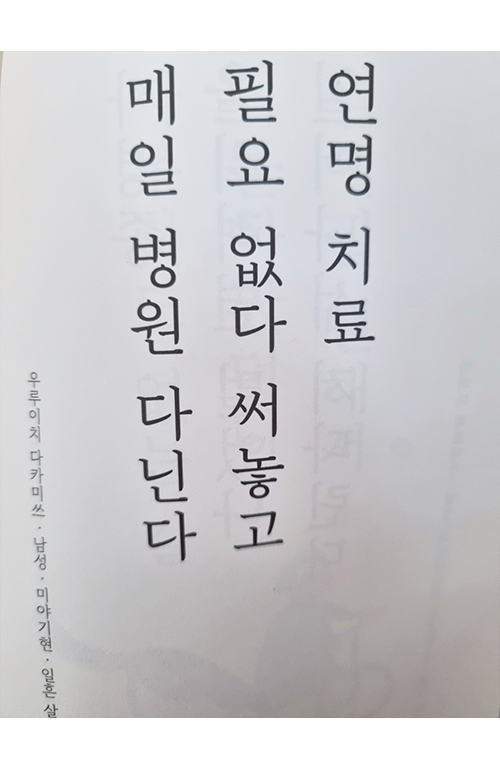 연명 치료
필요 없다 써놓고
매일 병원 다닌다
우루이치 다카미쓰·남성·미야기현·일흔 살